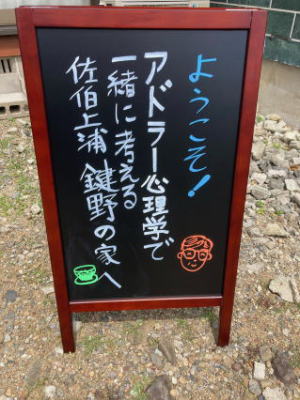 ようこそ!
アドラー心理学で
一緒に考える
佐伯上浦 鍵野の家へ